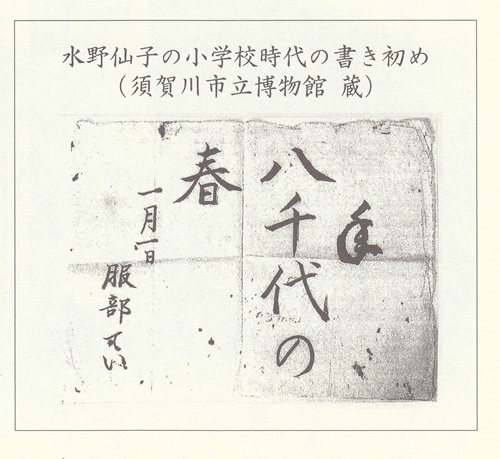 水野仙子の小学校時代の書き初め
(須賀川市立博物館 蔵)
八千代の
春
一月一日
服部てい